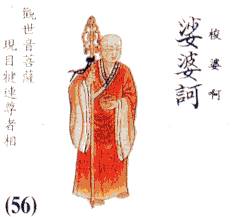 梭婆啊
娑婆訶
觀世音菩薩
現目犍連尊者相
(56)